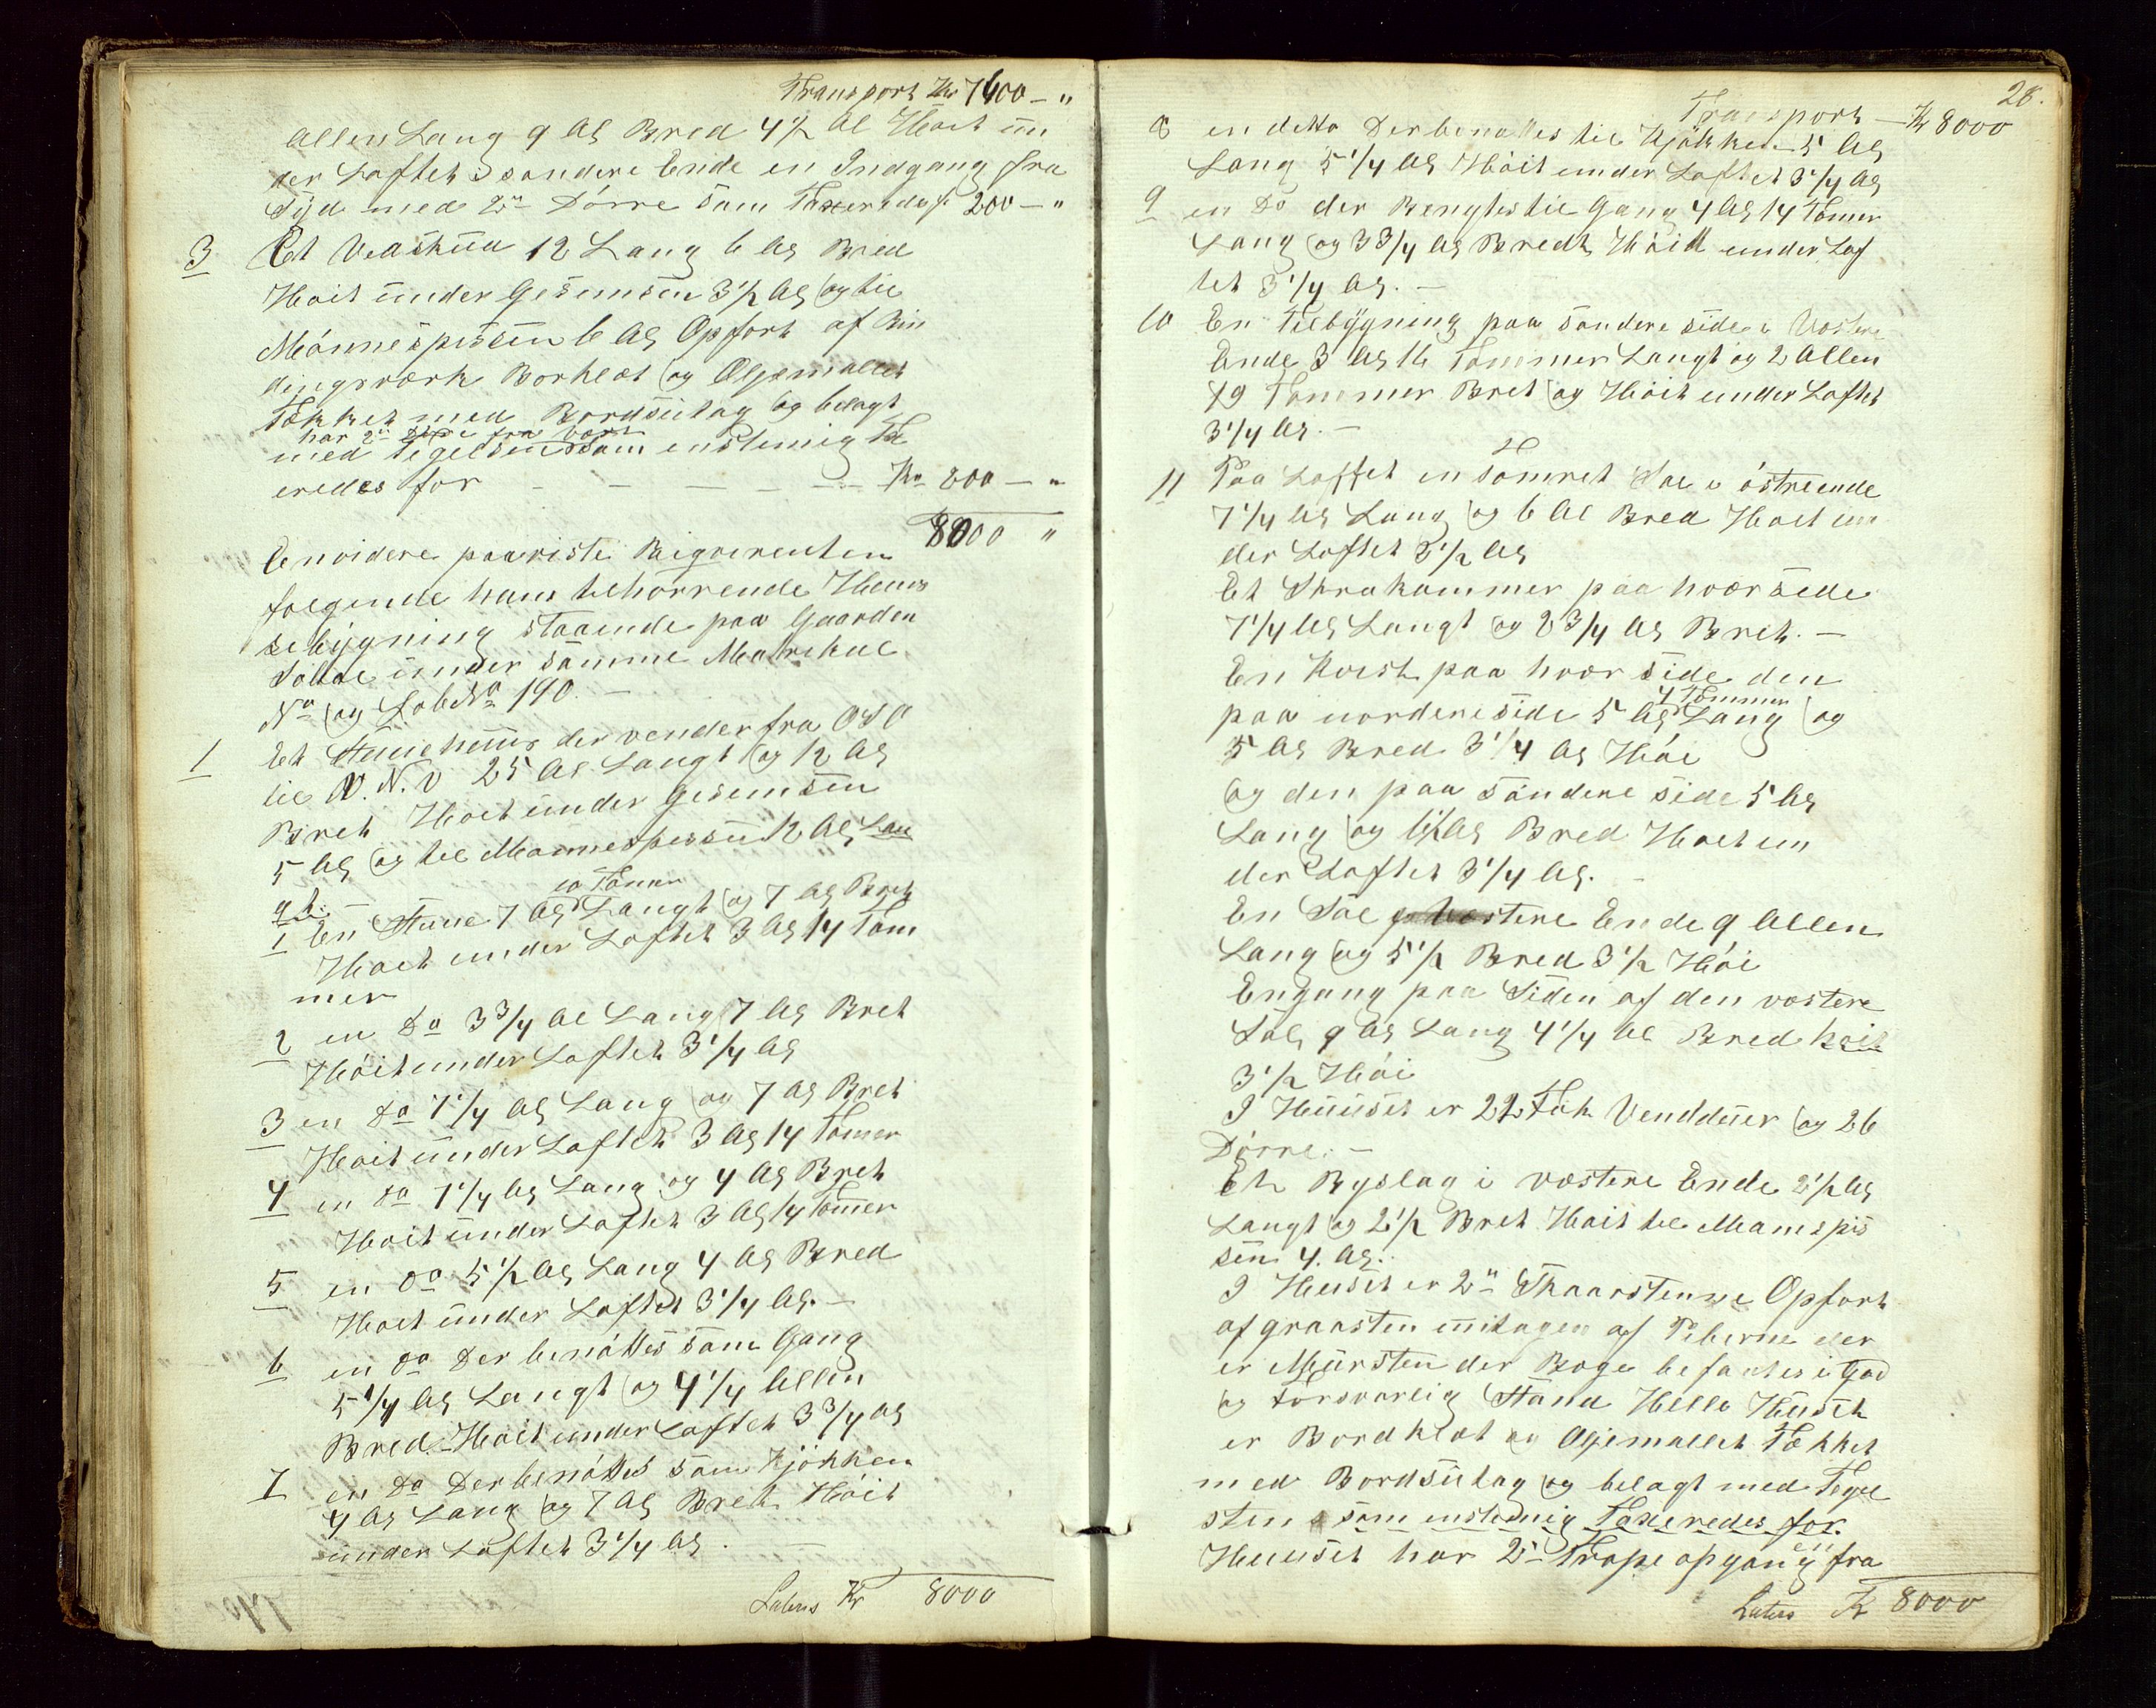 Transport Kr 7600 — "
Allen Lang 9 Al Bred 4 1/2 Al Høit un
der Loftet i søndere Ende en Indgang fra
Syd med 2de Dørre som Taxeredes f 200 — "
3 Et Vedskuu 12 Lang 6 Al Bred
Høit under Gesemsen 3 1/2 Al og til
Mønnespissen 6 Al Opført af Bin
dingsværk Borklæt og Oljemallet
Tækket med Bordsutag og belagt
har 2de Døre fra
med Tegelsten som enstemig Tax
eredes for — — — — Kr 200 — "
8000 "
Envidere paaviste Reqverenten
følgende ham tilhørrende Huus
bebygning staaende paa Gaarden
under samme Matrikul
No og LøbeNo 190. —
1 Et Stuuehuus der vender fra OSO
til V.N.V 25 Al Langt og 12 Al
Bret Høit under Gesemsen
5 Al og til Mønnespissen 12 Al Lan
gt. —
10 Tomer
1 En Stuue 7 Al Langt og 7 Al Bret
Høit under Loftet 3 Al 14 Tom
mer
2 en Do 3 3/4 Al Lang 7 Al Bret
Høit under Loftet 3 1/4 Al
3 en Do 7 1/4 Al Lang og 7 Al Bret
Høit under Loftet 3 Al 14 Tomer
4 en Do 7 1/4 Al Lang og 4 Al Bret
Høit under Loftet 3 Al 14 Tomer
5 en Do 5 1/2 Al Lang 4 Al Bred
Høit under Loftet 3 1/4 Al. —
6 en Do Der benøttes som Gang
5 1/4 Al Langt og 4 1/4 Allen
Bred. Høit under Loftet 3 3/4 Al
7 en Do Der benøttes som Kjøkken
4 Al Lang og 7 Al Bret Høit
under Loftet 3 1/4 Al. —
Latus Kr 8000
28.
Transport — Kr 8000
8 en detto Der benøttes til Kjøkken 5 Al
Lang 5 1/4 Al Høit under Loftet 3 1/4 Al
9 en Do der Bengtes til Gang 4 Al 14 Tomer
Lang og 3 3/4 Al Bredt Høit under Lof
tet 3 1/4 Al. —
10 En Tilbygning paa søndere side i Vestere
Ende 3 Al 16 Tommer Langt og 2 Allen
19 Tommer Bret og Høit under Loftet
3 1/4 Al. —
11 Paa Loftet en tømret Sal i østreende
7 1/4 Al Lang og 6 Al Bred Høit un
der Loftet 3 1/2 Al
Et Skrakammer paa hvær side
7 1/4 Al Langt og 2 3/4 Al Bret. —
En Kvist paa hvær side den
4 Tommer
paa nordere side 5 Al Lang og
5 Al Bred 3 1/4 Al Høi
og den paa søndere side 5 Al
Lang og Al Bred Høit un
der Loftet 3 1/4 Al. —
En Sal vestere Ende 9 Allen
Lang og 5 1/2 Bred 3 1/2 Høi
En gang paa Siden af den vestere
Sal 9 Al Lang 4 1/4 Al Bred høit
3 1/2 Høi
I Huuset er 22 Fak Vendduer og 26
Dørre. —
Et Byslag i vestere Ende 2 1/2 Al
Langt og 2 1/2 Bret Høit til Mønespis
sen 4. Al.
I Huuset er 2de Skaarstenne Opført
af graasten untagen af Piberne der
er Mursten der Bege befantes i God
og forsvarlig Stand Hella Huuset
er Bordklæt og Oljemallet Tækket
med Bordsutag og belagt med Tegel
sten som enstemig Taxeredes for
Huuset har 2de Trape opgang fra
Latus Kr 8000